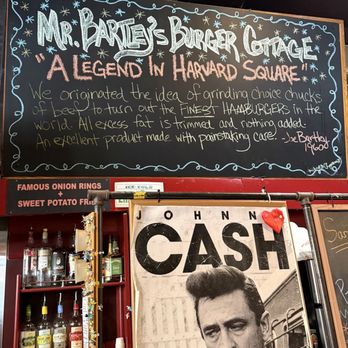 Mr. Bartley's Burger Cottage
"A Legend In Harvard Square"
We originated the idea of grinding choice chucks
of beef to turn out the FINEST HAMBURGERS in the
world. All excess fat is trimmed and nothing added.
An excellent product made with painstaking care. -Joe Bartley
1960
FAMOUS ONION RINGS
+
SWEET POTATO FR
ICE COLD
JOHNN
CASH